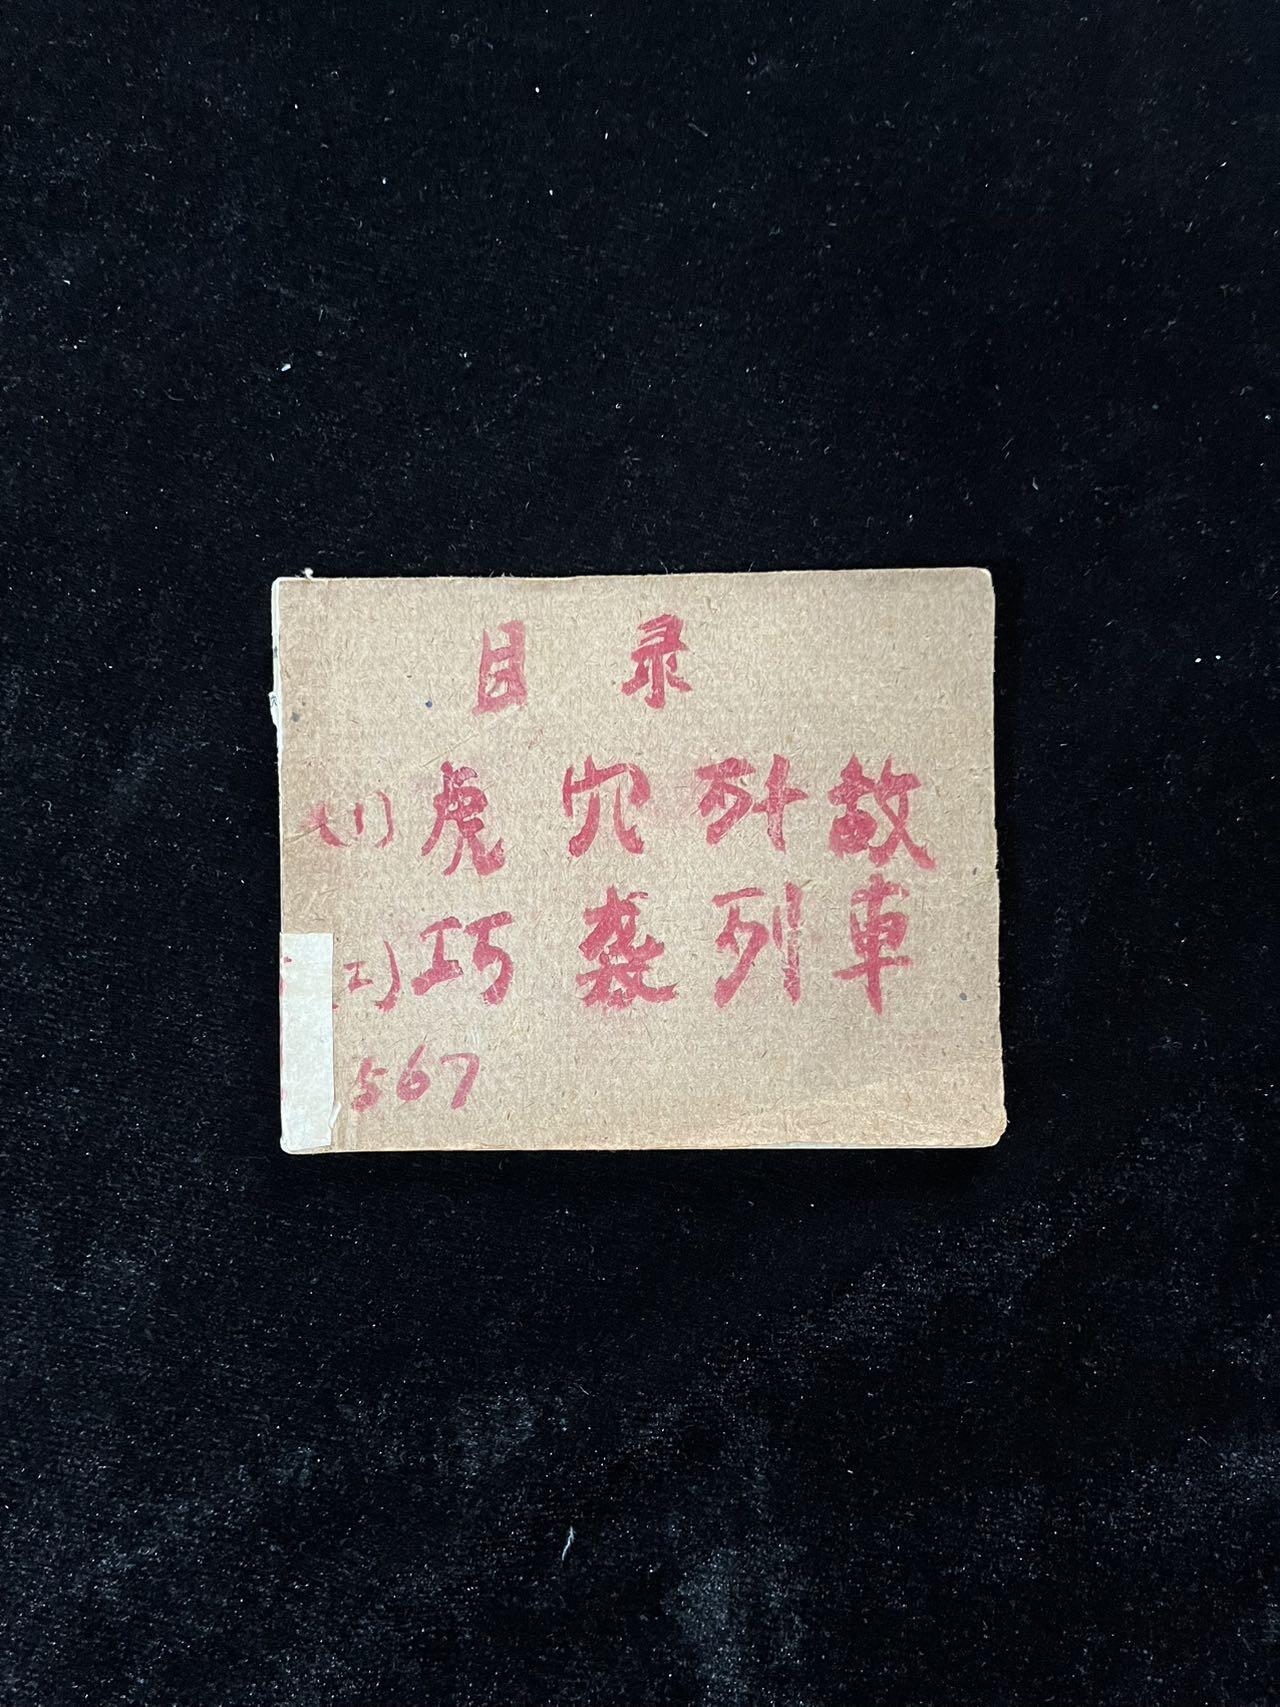 目录
(1)虎穴歼敌
2)巧袭列車
567